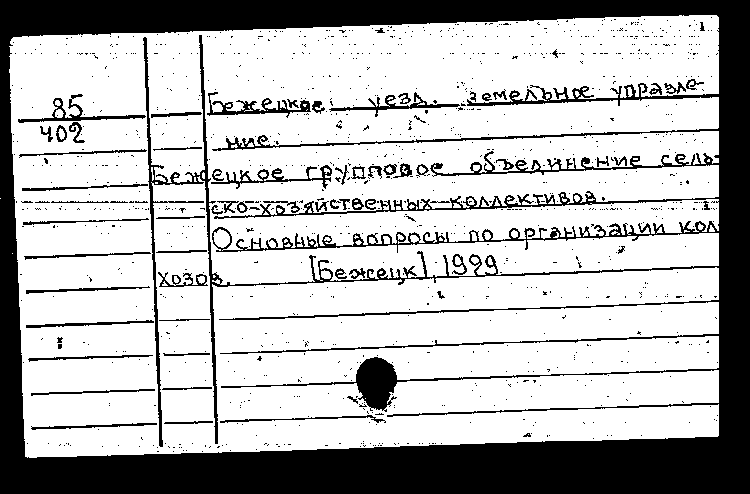 85
402
Бежецкое уезд. земельное управле-
ние.
Бежецкое групповое объединение сель-
ско-хозяйственных коллективов.
Основные вопросы по организации кол
хозов. [Бежецк], 1929